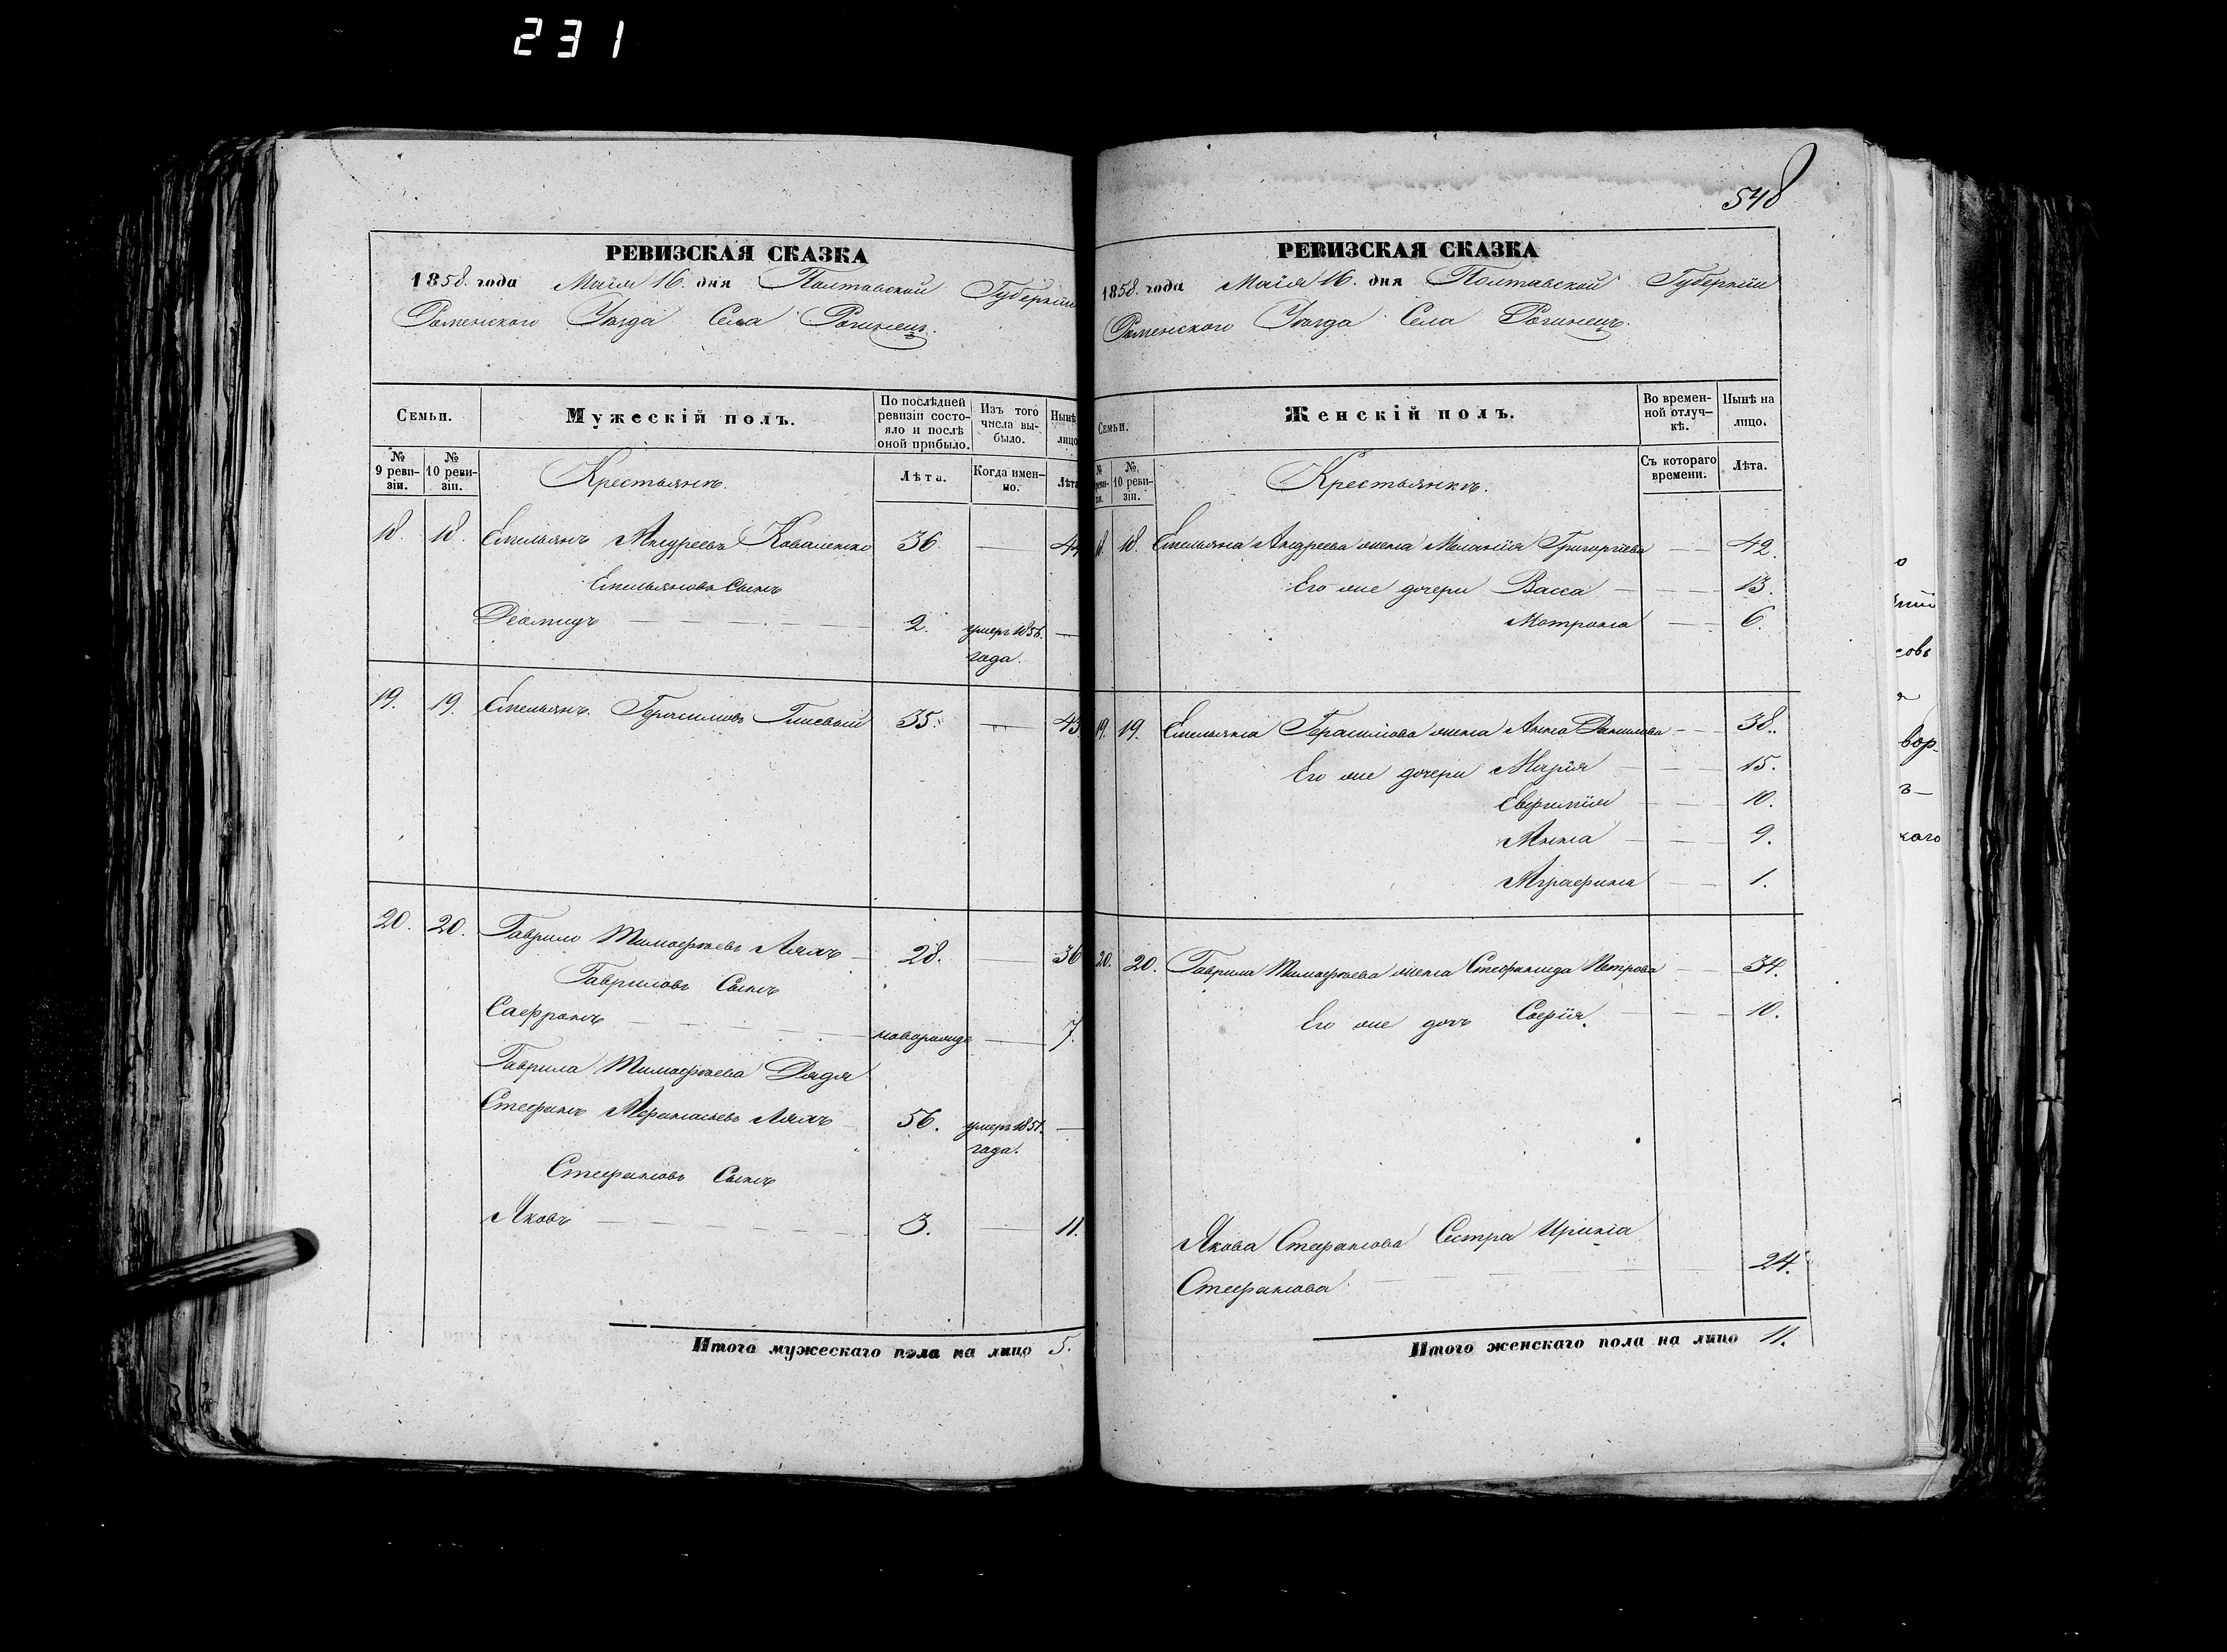 231
548
РЕВИЗСКАЯ СКАЗКА
1858. года Маія 16. дня Полтавской Губерніи
Роменского Уѣзда Села Рогинецъ.
Семьи.
Мужескій полъ.
По послѣдней ревизіи состояло и послѣ оной прибыло.
Изъ того числа выбыло.
Нынѣ лицо
№ 9 ревизіи.
№ 10 ревизіи.
Крестьянъ.
Лѣта.
Когда именно.
Лѣта
18. 18. Емельянъ Андреевъ Коваленко 36. — 44
Емельяновъ Сынъ
Деомидъ — 2. умеръ 1856. —
года.
19. 19. Емельянъ Герасимовъ 35. — 43
20. 20. Гаврило Тимофѣевъ Ляхъ 28. — 36
Гавриловъ Сынъ
Сафронъ — новорожд — 7.
Гаврила Тимофѣева Дядя
Стефанъ Афанасьевъ Ляхъ 56. умеръ 1851. —
года.
Стефановъ Сынъ
Яковъ — 3. — 11.
Итого мужескаго пола на лицо 5.
РЕВИЗСКАЯ СКАЗКА
1858. года Маія 16. дня Полтавской Губерніи
Роменского Уѣзда Села Рогинецъ.
Семьи.
Женскій полъ.
Во временной отлучкѣ.
Нынѣ на лицо.
№ 10 ревизіи.
Крестьянкъ.
Съ котораго времени.
Лѣта.
18. 18. Емельяна Андреева жена Меланія Григорьева — 42.
Его же дочери Васса — 13.
Мотрона — 6.
19. 19. Емельяна Герасимова жена Анна Данилова — 38.
Его же дочери Марія — 15.
Евфимія — 10.
Анна — 9.
Аграфина — 1.
20. 20. Гаврила Тимофѣева жена Стефанида Петрова — 34.
Его же дочь Софія — 10.
Якова Стефанова Сестра Ирина
Стефанова — 24.
Итого женскаго пола на лицо 11.